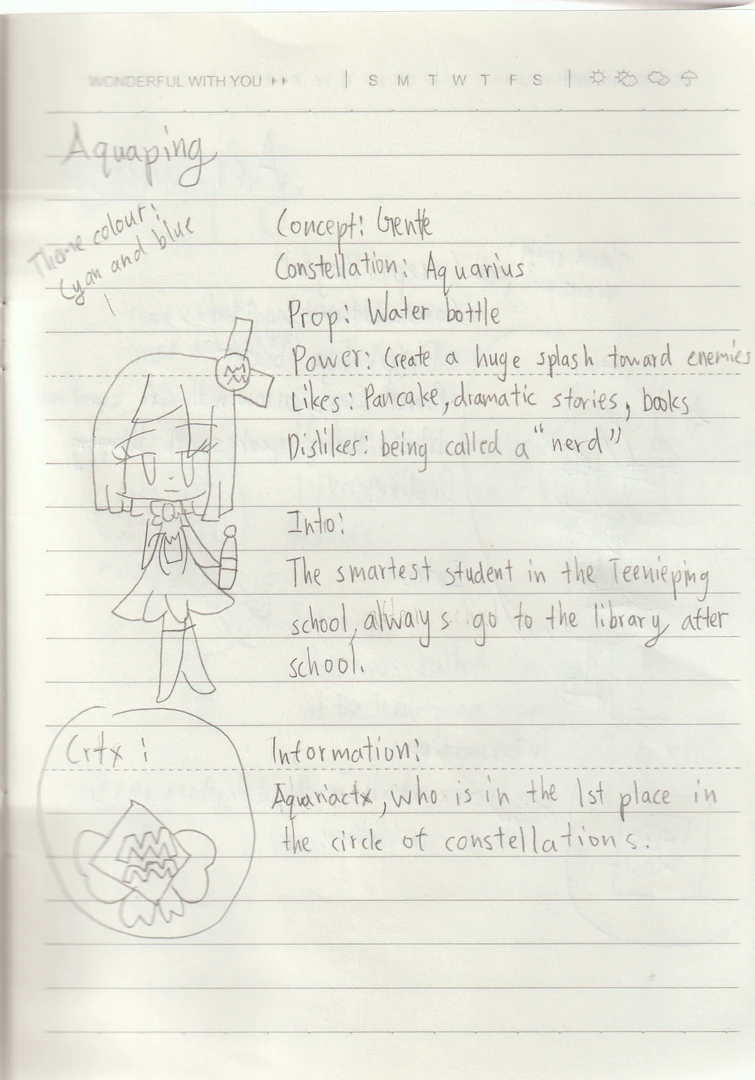 WONDERFUL WITH YOU
| S M T W T F S |
Aquaping
Theme colour:
Cyan and blue
Concept: Gentle
Constellation: Aquarius
Prop: Water bottle
Power: Create a huge splash toward enemies
Likes: Pancake, dramatic stories, books
Dislikes: being called a "nerd"
Into:
The smartest student in the Teenieping
school, always go to the library after
school.
Crtx:
Information:
Aquariactx, who is in the 1st place in
the circle of constellations.